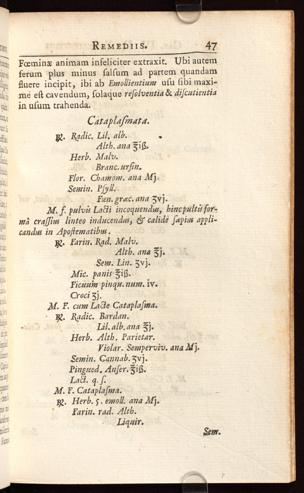 REMEDIIS. 47
Fœminæ animam infeliciter extraxit. Ubi autem
ſerum plus minus ſalſum ad partem quandam
fluere incipit, ibi ab Emollientium uſu ſibi maxi-
mè eſt cavendum, ſolaque reſolventia & diſcutientia
in uſum trahenda.
Cataplaſmata.
℞. Radic. Lil. alb.
Alth. ana ℥iß.
Herb. Malv.
Branc. urſin.
Flor. Chamom. ana Mj.
Semin. Pſyll.
Fœn. græc. ana ʒvj.
M. f. pulvis Lacti incoquendus, hinc pultis for-
mâ craſſum linteo inducendus, & calidè ſæpius appli-
candus in Apoſtematibus.
℞. Farin. Rad. Malv.
Alth. ana ℥j.
Sem. Lin. ʒvj.
Mic. panis ℥iß.
Ficuum pinqu. num. iv.
Croci ʒj.
M. F. cum Lacte Cataplaſma.
℞. Radic. Bardan.
Lil. alb. ana ℥j.
Herb. Alth. Parietar.
Violar. Semperviv. ana Mj.
Semin. Cannab. ʒvj.
Pingued. Anſer. ℥iß.
Lact. q. ſ.
M. F. Cataplaſma.
℞. Herb. 5. emoll. ana Mj.
Farin. rad. Alth.
Liquir.
Sem.